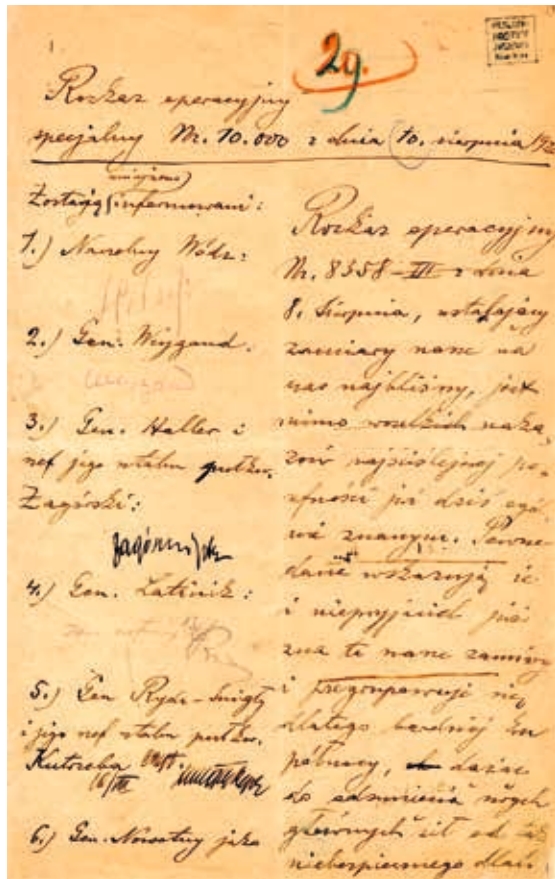 29.
Rozkaz operacyjny
specjalny Nr. 10.000 z dnia 10. sierpnia 192
Zostają informowani:
1.) Naczelny Wódz:
2.) Gen. Weygand.
3.) Gen. Haller i
szef jego sztabu pułkw.
Zagórski:
4.) Gen. Latinik:
5.) Gen Rydz-Śmigły
i jego szef sztabu pułkw.
Kutrzeba
6.) Gen. Nowotny jako
Rozkaz operacyjny
Nr. 8358-III z dnia
8. Sierpnia, ustalający
zamiary nasze na
czas najbliższy, jest
mimo wszelkich naka-
zów najściślejszej po-
ufności już dziś
znanym. Pewne
dane wskazują że
i nieprzyjaciel już
zna te nasze zamiary
i przegrupowuje się
dlatego bardziej ku
północy, dążąc
do
głównych sił od
niebezpiecznego dlań